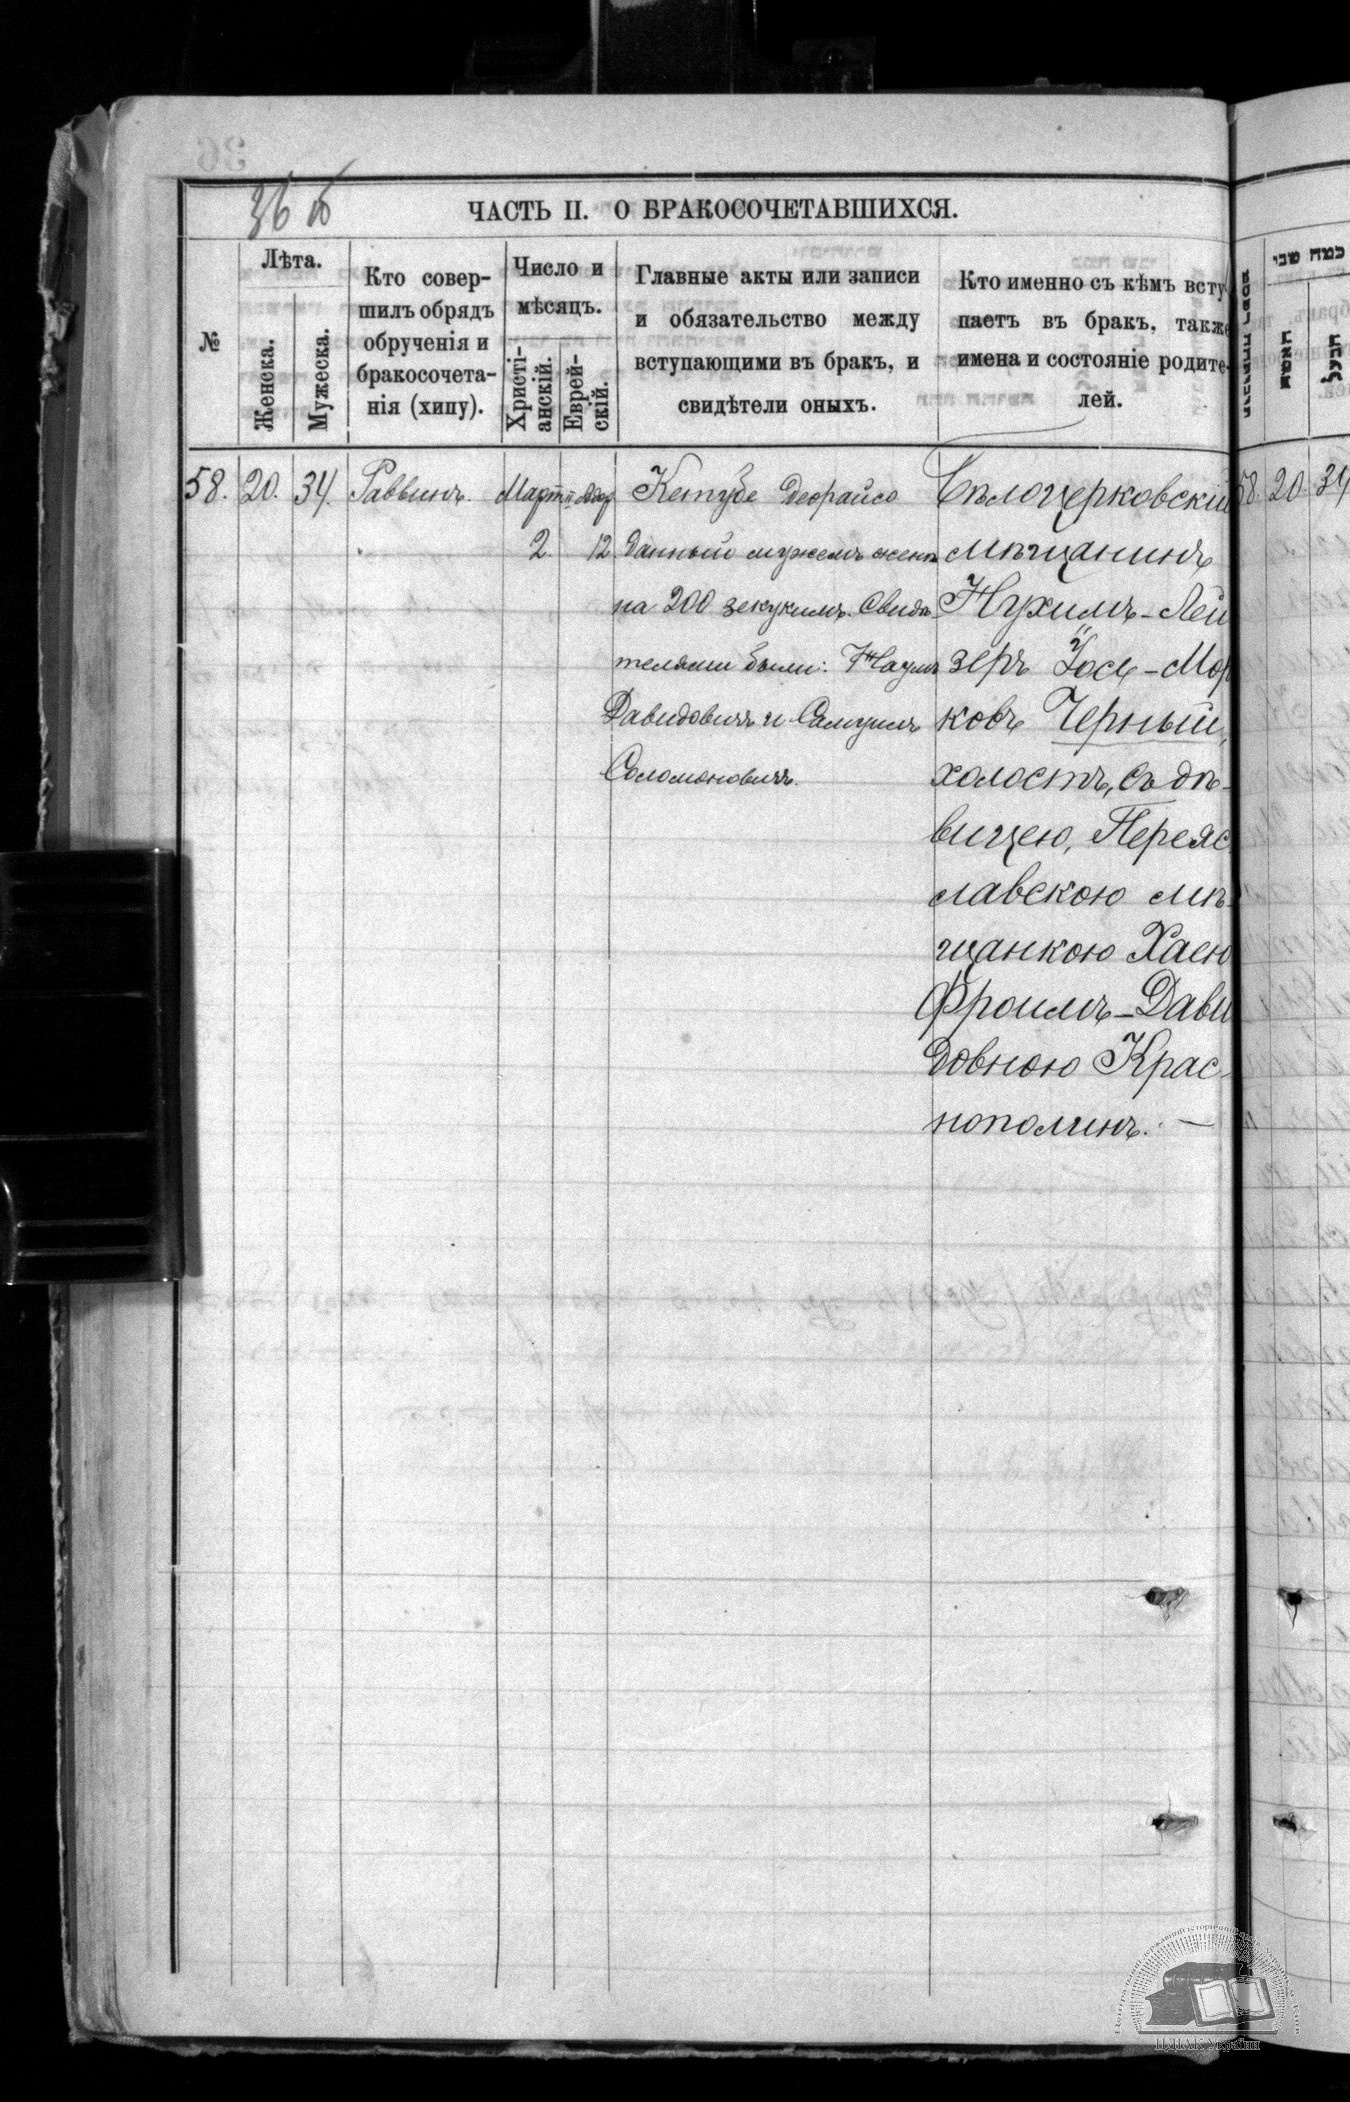 36 б
ЧАСТЬ II. О БРАКОСОЧЕТАВШИХСЯ.
№
Лѣта.
Женска.
Мужеска.
Кто совер-
шилъ обрядъ
обрученія и
бракосочета-
нія (хипу).
Число и
мѣсяцъ.
Христі-
анскій.
Еврей-
скій.
Главные акты или записи
и обязательство между
вступающими въ бракъ, и
свидѣтели оныхъ.
Кто именно съ кѣмъ всту
паетъ въ бракъ, также
имена и состояніе родите-
лей.
58. 20. 34. Раввинъ. Март
2. 12
Кетубе деорайсо
данный мужемъ женѣ
на 200 зекукимъ. Свидѣ-
телями были: Наумъ
Давидовичъ и Самуилъ
Соломоновичъ.
Бѣлоцерковскій
мѣщанинъ
Нухимъ-Лей
зеръ Іось-Мор
ковъ Черный,
холостъ, съ дѣ-
вицею, Переяс
лавскою мѣ-
щанкою Хаею
Фроимъ-Дави
довною Крас-
нополинъ. —
כמה שני
האשה
הבעל
58 20 34
ЦДІАК України